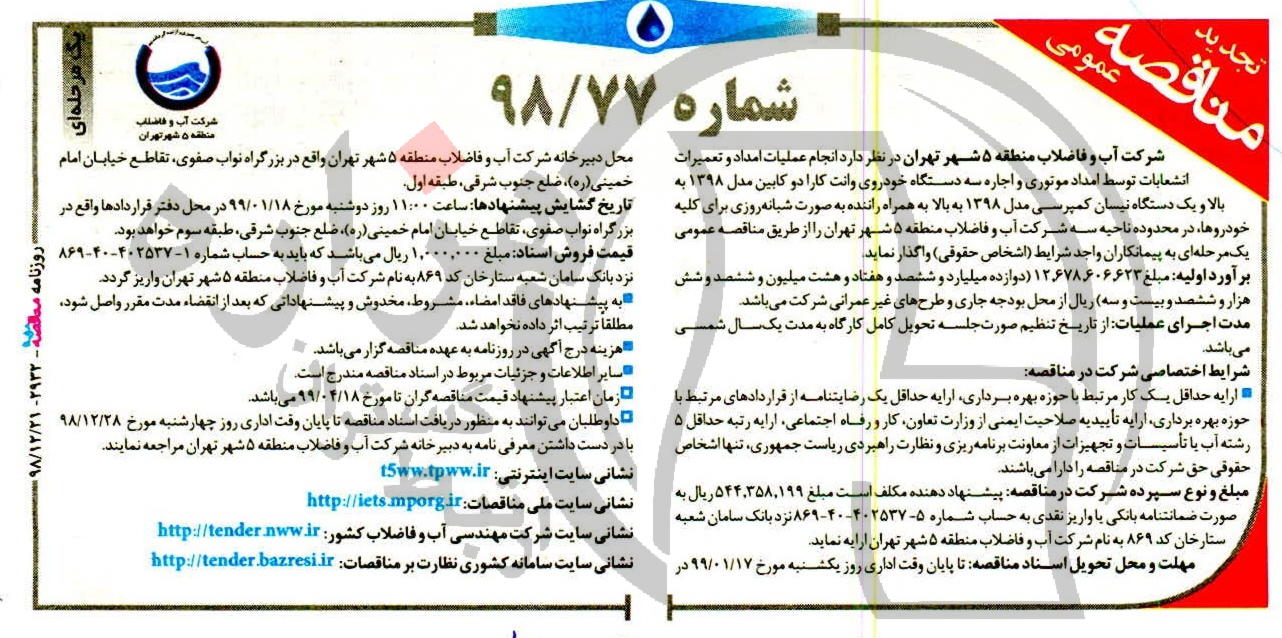 تجدید
مناقصه
عمومی
شماره ۹۸/۷۷
یک مرحله‌ای
شرکت آب و فاضلاب
منطقه ۵ شهر تهران
شرکت آب و فاضلاب منطقه ۵ شهر تهران در نظر دارد انجام عملیات امداد و تعمیرات
انشعابات توسط امداد موتوری و اجاره سه دستگاه خودروی وانت کارا دو کابین مدل ۱۳۹۸ به
بالا و یک دستگاه نیسان کمپرسی مدل ۱۳۹۸ به بالا به همراه راننده به صورت شبانه‌روزی برای کلیه
خودروها، در محدوده ناحیه سه شرکت آب و فاضلاب منطقه ۵ شهر تهران را از طریق مناقصه عمومی
یک‌مرحله‌ای به پیمانکاران واجد شرایط (اشخاص حقوقی) واگذار نماید.
برآورد اولیه: مبلغ ۱۲,۶۷۸,۶۰۶,۶۲۳ (دوازده میلیارد و ششصد و هفتاد و هشت میلیون و ششصد و شش
هزار و ششصد و بیست و سه) ریال از محل بودجه جاری و طرح‌های غیر عمرانی شرکت می‌باشد.
مدت اجرای عملیات: از تاریخ تنظیم صورت‌جلسه تحویل کامل کارگاه به مدت یک‌سال شمسی
می‌باشد.
شرایط اختصاصی شرکت در مناقصه:
ارایه حداقل یک کار مرتبط با حوزه بهره‌برداری، ارایه حداقل یک رضایتنامه از قراردادهای مرتبط با
حوزه بهره برداری، ارایه تأییدیه صلاحیت ایمنی از وزارت تعاون، کار و رفاه اجتماعی، ارایه رتبه حداقل ۵
رشته آب یا تأسیسات و تجهیزات از معاونت برنامه‌ریزی و نظارت راهبردی ریاست جمهوری، تنها اشخاص
حقوقی حق شرکت در مناقصه را دارا می‌باشند.
مبلغ و نوع سپرده شرکت در مناقصه: پیشنهاد دهنده مکلف است مبلغ ۵۴۴,۳۵۸,۱۹۹ ریال به
صورت ضمانتنامه بانکی یا واریز نقدی به حساب شماره ۵-۴۰۲۵۳۷-۴۰-۸۶۹ نزد بانک سامان شعبه
ستارخان کد ۸۶۹ به نام شرکت آب و فاضلاب منطقه ۵ شهر تهران ارایه نماید.
مهلت و محل تحویل اسناد مناقصه: تا پایان وقت اداری روز یکشنبه مورخ ۹۹/۰۱/۱۷ در
محل دبیرخانه شرکت آب و فاضلاب منطقه ۵ شهر تهران واقع در بزرگراه نواب صفوی، تقاطع خیابان امام
خمینی(ره)، ضلع جنوب شرقی، طبقه اول.
تاریخ گشایش پیشنهادها: ساعت ۱۱:۰۰ روز دوشنبه مورخ ۹۹/۰۱/۱۸ در محل دفتر قراردادها واقع در
بزرگراه نواب صفوی، تقاطع خیابان امام خمینی(ره)، ضلع جنوب شرقی، طبقه سوم خواهد بود.
قیمت فروش اسناد: مبلغ ۱,۰۰۰,۰۰۰ ریال می‌باشد که باید به حساب شماره ۱-۴۰۲۵۳۷-۴۰-۸۶۹
نزد بانک سامان شعبه ستارخان کد ۸۶۹ به نام شرکت آب و فاضلاب منطقه ۵ شهر تهران واریز گردد.
به پیشنهادهای فاقد امضاء، مشروط، مخدوش و پیشنهاداتی که بعد از انقضاء مدت مقرر واصل شود،
مطلقاً ترتیب اثر داده نخواهد شد.
هزینه درج آگهی در روزنامه به عهده مناقصه‌گزار می‌باشد.
سایر اطلاعات و جزئیات مربوط در اسناد مناقصه مندرج است.
زمان اعتبار پیشنهاد قیمت مناقصه‌گران تا مورخ ۹۹/۰۴/۱۸ می‌باشد.
داوطلبان می‌توانند به منظور دریافت اسناد مناقصه تا پایان وقت اداری روز چهارشنبه مورخ ۹۸/۱۲/۲۸
با در دست داشتن معرفی نامه به دبیرخانه شرکت آب و فاضلاب منطقه ۵ شهر تهران مراجعه نمایند.
نشانی سایت اینترنتی: t5ww.tpww.ir
نشانی سایت ملی مناقصات: http://iets.mporg.ir
نشانی سایت شرکت مهندسی آب و فاضلاب کشور: http://tender.nww.ir
نشانی سایت سامانه کشوری نظارت بر مناقصات: http://tender.bazresi.ir
روزنامه مناقصه - ۲۹۳۲ - ۹۸/۱۲/۲۱